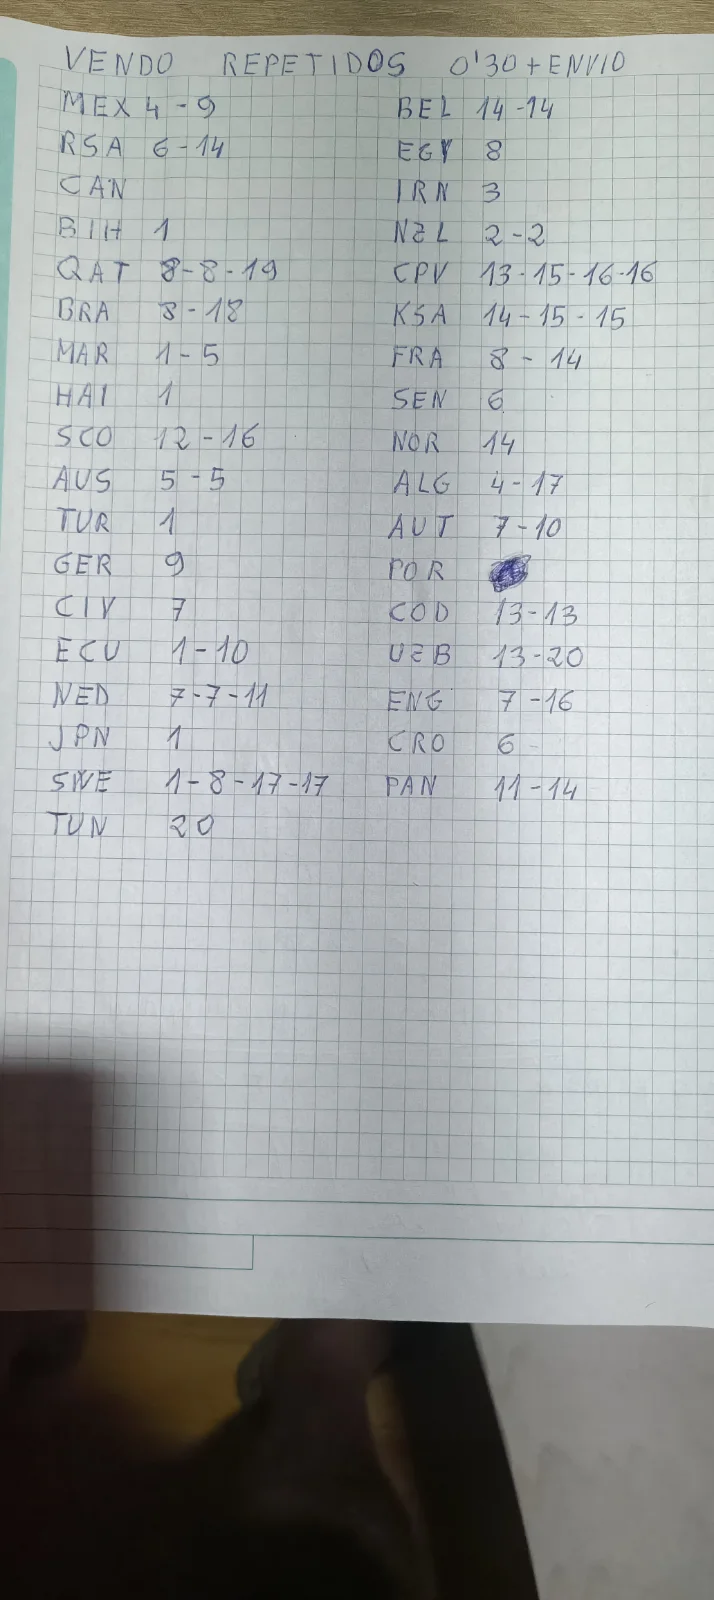 VENDO REPETIDOS 0'30 + ENVIO
MEX 4 - 9
RSA 6 - 14
CAN
BIH 1
QAT 8 - 8 - 19
BRA 8 - 18
MAR 1 - 5
HAI 1
SCO 12 - 16
AUS 5 - 5
TUR 1
GER 9
CIV 7
ECU 1 - 10
NED 7 - 7 - 11
JPN 1
SWE 1 - 8 - 17 - 17
TUN 20
BEL 14 - 14
EGY 8
IRN 3
NZL 2 - 2
CPV 13 - 15 - 16 - 16
KSA 14 - 15 - 15
FRA 8 - 14
SEN 6
NOR 14
ALG 4 - 17
AUT 7 - 10
POR
COD 13 - 13
UZB 13 - 20
ENG 7 - 16
CRO 6
PAN 11 - 14